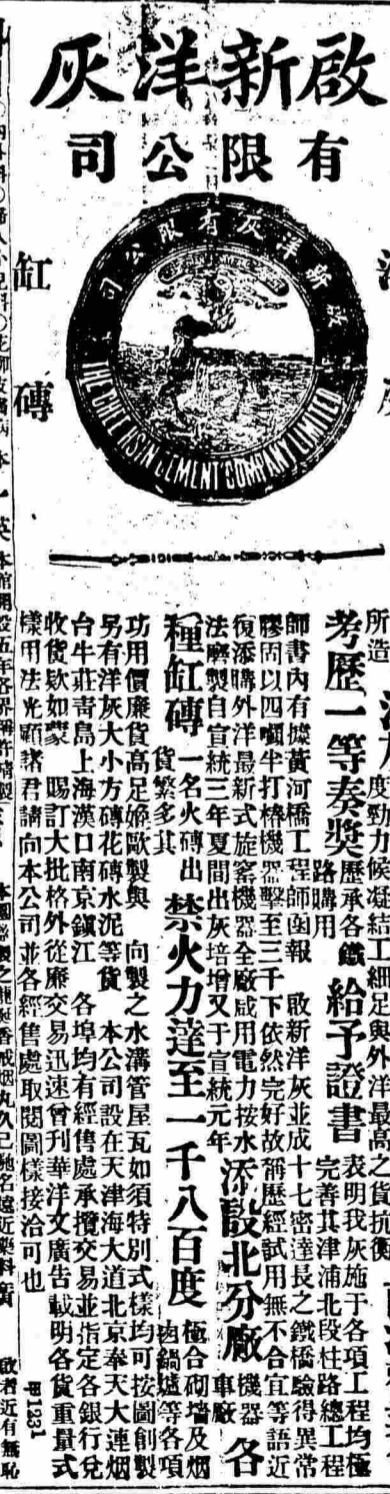 啟新洋灰
有限公司
啟新洋灰有限公司
THE CHEE HSIN CEMENT COMPANY LIMITED
缸磚
所造
度勁力候凝結工細足與外洋最高之貨抗衡
考歷一等奏獎歷承各鐵路購用給予證書表明我灰施于各項工程均極完善其津浦北段柱路總工程
師書內有擬黃河橋工程師函報 啟新洋灰並成十七密達長之鐵橋驗得異常
膠固以四噸半打樁機器擊至三千下依然完好故稱歷經試用無不合宜等語近
復添購外洋最新式旋窰機器全廠咸用電力按水添設北分廠機器車廠各
法磨製自宣統三年夏間出灰培增又于宣統元年
種缸磚一名火磚出貨繁多其禁火力達至一千八百度極合砌墻及烟肉鍋爐等各項
功用價廉貨高足媲歐製與 向製之水溝管屋瓦如須特別式樣均可按圖創製
另有洋灰大小方磚花磚水泥等貨 本公司設在天津海大道北京奉天大連烟
台牛莊青島上海漢口南京鎮江 各埠均有經售處承攬交易並指定各銀行兌
收貨欵如蒙 賜訂大批格外從廉交易迅速曾刊華洋文廣告載明各貨重量式
樣用法光顧諸君請向本公司並各經售處取閱圖樣接洽可也
甲1231
英
本館開設五年各界稱許
敬者近有無恥